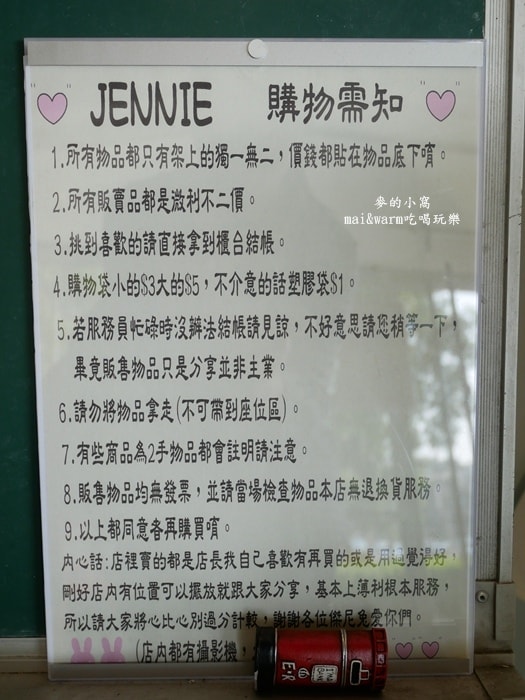 JENNIE 購物需知
1.所有物品都只有架上的獨一無二，價錢都貼在物品底下唷。
2.所有販賣品都是激利不二價。
麥的小窩
mai&warm吃喝玩樂
3.挑到喜歡的請直接拿到櫃台結帳。
4.購物袋小的$3大的$5，不介意的話塑膠袋$1。
5.若服務員忙碌時沒辦法結帳請見諒，不好意思請您稍等一下，
畢竟販售物品只是分享並非主業。
6.請勿將物品拿走(不可帶到座位區)。
7.有些商品為2手物品都會註明請注意。
8.販售物品均無發票，並請當場檢查物品本店無退換貨服務。
9.以上都同意各再購買唷。
內心話:店裡賣的都是店長我自己喜歡有再買的或是用過覺得好，
剛好店內有位置可以擺放就跟大家分享，基本上薄利根本服務，
所以請大家將心比心別過分計較，謝謝各位傑尼兔愛你們。
(店內都有攝影機，
E·R